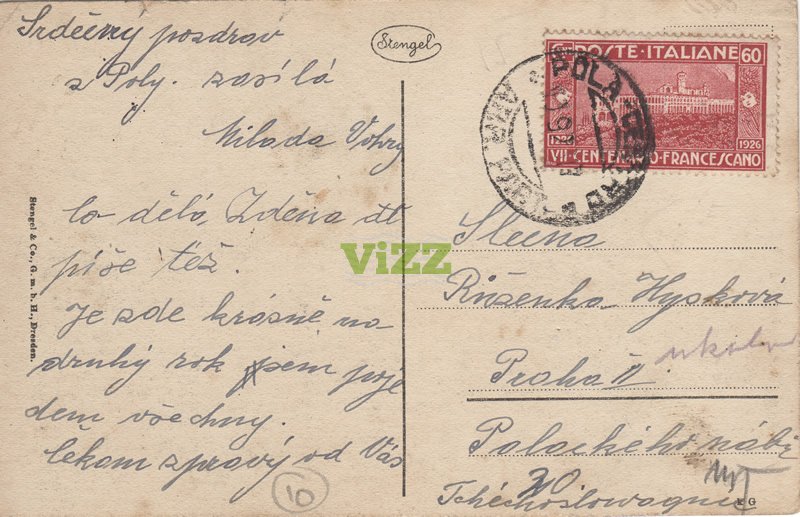 Srdečný pozdrav
z Poly. zasílá
Milada Vohry
Co dělá Zděna at
píše též.
Je zde krásně na
druhý rok jsem poje
dem všechny.
čekam zpravy od Vás
10
Stengel
Stengel & Co., G. m. b. H., Dresden.
POSTE · ITALIANE 60
1926
VII · CENTENARIO · FRANCESCANO
POLA CENTRO
ViZZ
Slečna
Růženka Hysková
Praha II
Palackého nábř
20
Tchéchoslowaquie